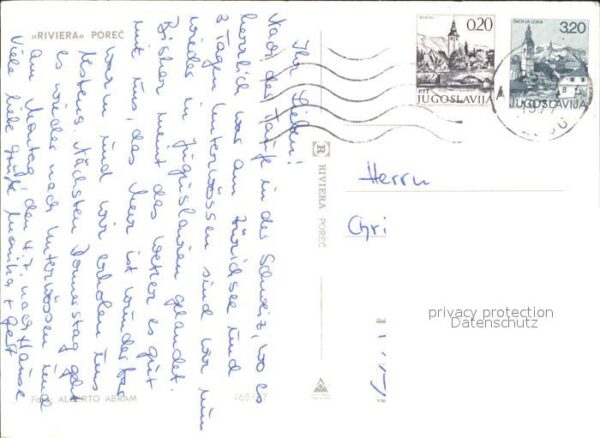 »RIVIERA« POREČ
Ihr Lieben!
Nach der Taufe in der Schweiz, wo es
herrlich war am Zürichsee und
2 Tagen Unterwössen sind wir nun
wieder in Jugoslavien gelandet.
Bisher meint das Wetter es gut
mit uns, das Meer ist wunderbar
warm und wir erholen uns
bestens. Nächsten Donnerstag geht
es wieder nach Unterwössen und
am Montag, den 4.7. nach Hause
Viele liebe Grüße Monika + Gert
Foto: ALBERTO ABRAM
RIVIERA POREČ
0,20
PTT
JUGOSLAVIJA
ŠKOFJA LOKA
3,20
JUGOSLAVIJA
Herrn
Chri
privacy protection
Datenschutz